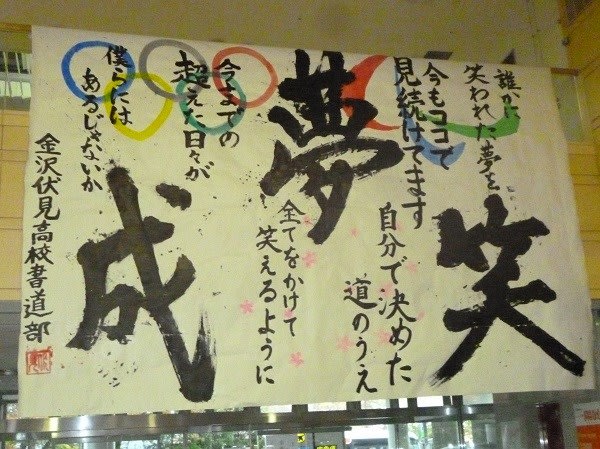 誰かに
笑われた夢を
今もココで
見続けてます
笑
自分で決めた
道のうえ
夢
全てをかけて
笑えるように
今までの
超えた日々が
僕らには
あるじゃないか
成
金沢伏見高校書道部